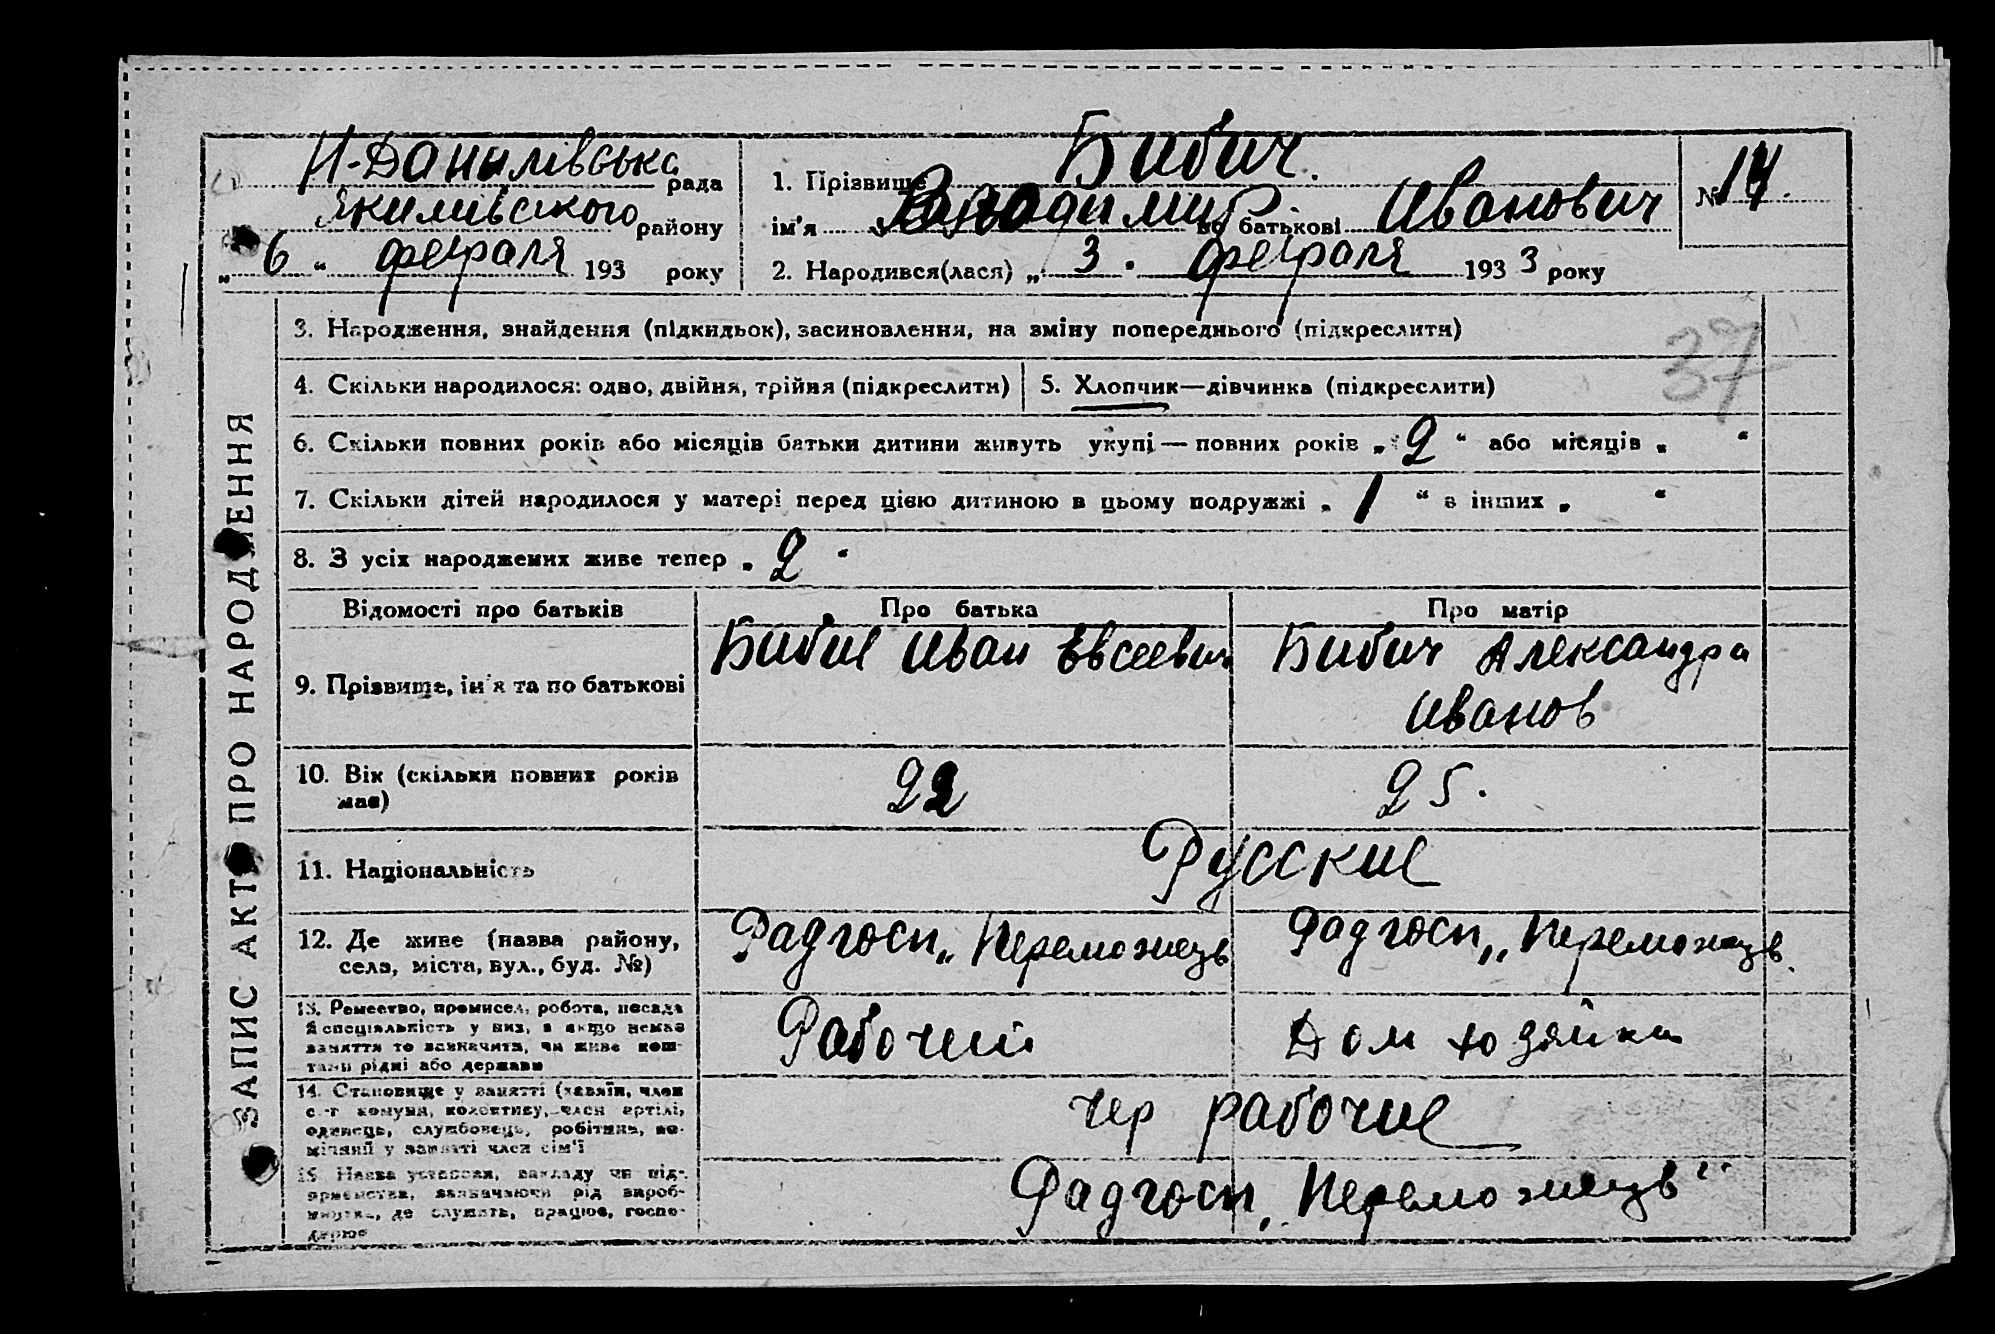 Н-Данилівська рада
Якимівського району
„ 6 “ февраля 193 року
1. Прізвище Бибич.
ім'я Володимир по батькові Иванович
2. Народився(лася) „ 3 . февраля 1933 року
№ 14.
37
ЗАПИС АКТ ПРО НАРОДЖЕННЯ
3. Народження, знайдення (підкидьок), засиновлення, на зміну попереднього (підкреслити)
4. Скільки народилося: одно, двійня, трійня (підкреслити)
5. Хлопчик—дівчинка (підкреслити)
6. Скільки повних років або місяців батьки дитини живуть укупі — повних років „ 2 “ або місяців „ “
7. Скільки дітей народилося у матері перед цією дитиною в цьому подружжі „ 1 “ в інших „ “
8. З усіх народжених живе тепер „ 2 “
Відомості про батьків
Про батька
Про матір
9. Прізвище, ім'я та по батькові
Бибич Иван Евсеевич
Бибич Александра
Иванов
10. Вік (скільки повних років
має)
22
25.
11. Національність
Русские
12. Де живе (назва району,
села, міста, вул., буд. №)
Радгосп „Переможець
Радгосп „Переможець
13. Ремество, промисел, робота, посада
й спеціальність у них, а якщо немає
заняття то зазначити, чи живе кош-
тами рідні або держави
Рабочий
Дом хозяйка
14. Становище у занятті (хазяїн, член
с-г комуни, колективу, член артілі,
одинець, службовець, робітник, по-
мічний у занятті член сім'ї
чер рабочие
15. Назва установи, закладу чи під-
приємства, зазначаючи рід вироб-
ництва, де служить, працює, госпо-
дарює
Радгосп „Переможець“